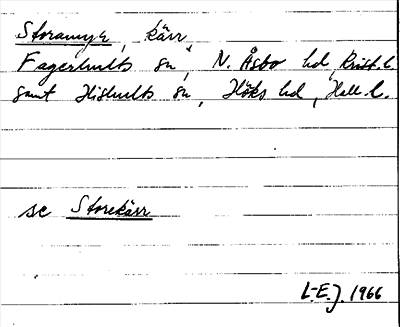 Storamyr, kärr,
Fagerhults sn, N. Åsbo hd, Krist. l.
samt Hishults sn, Höks hd, Hall. l.
se Storekärr
L-E. J. 1966